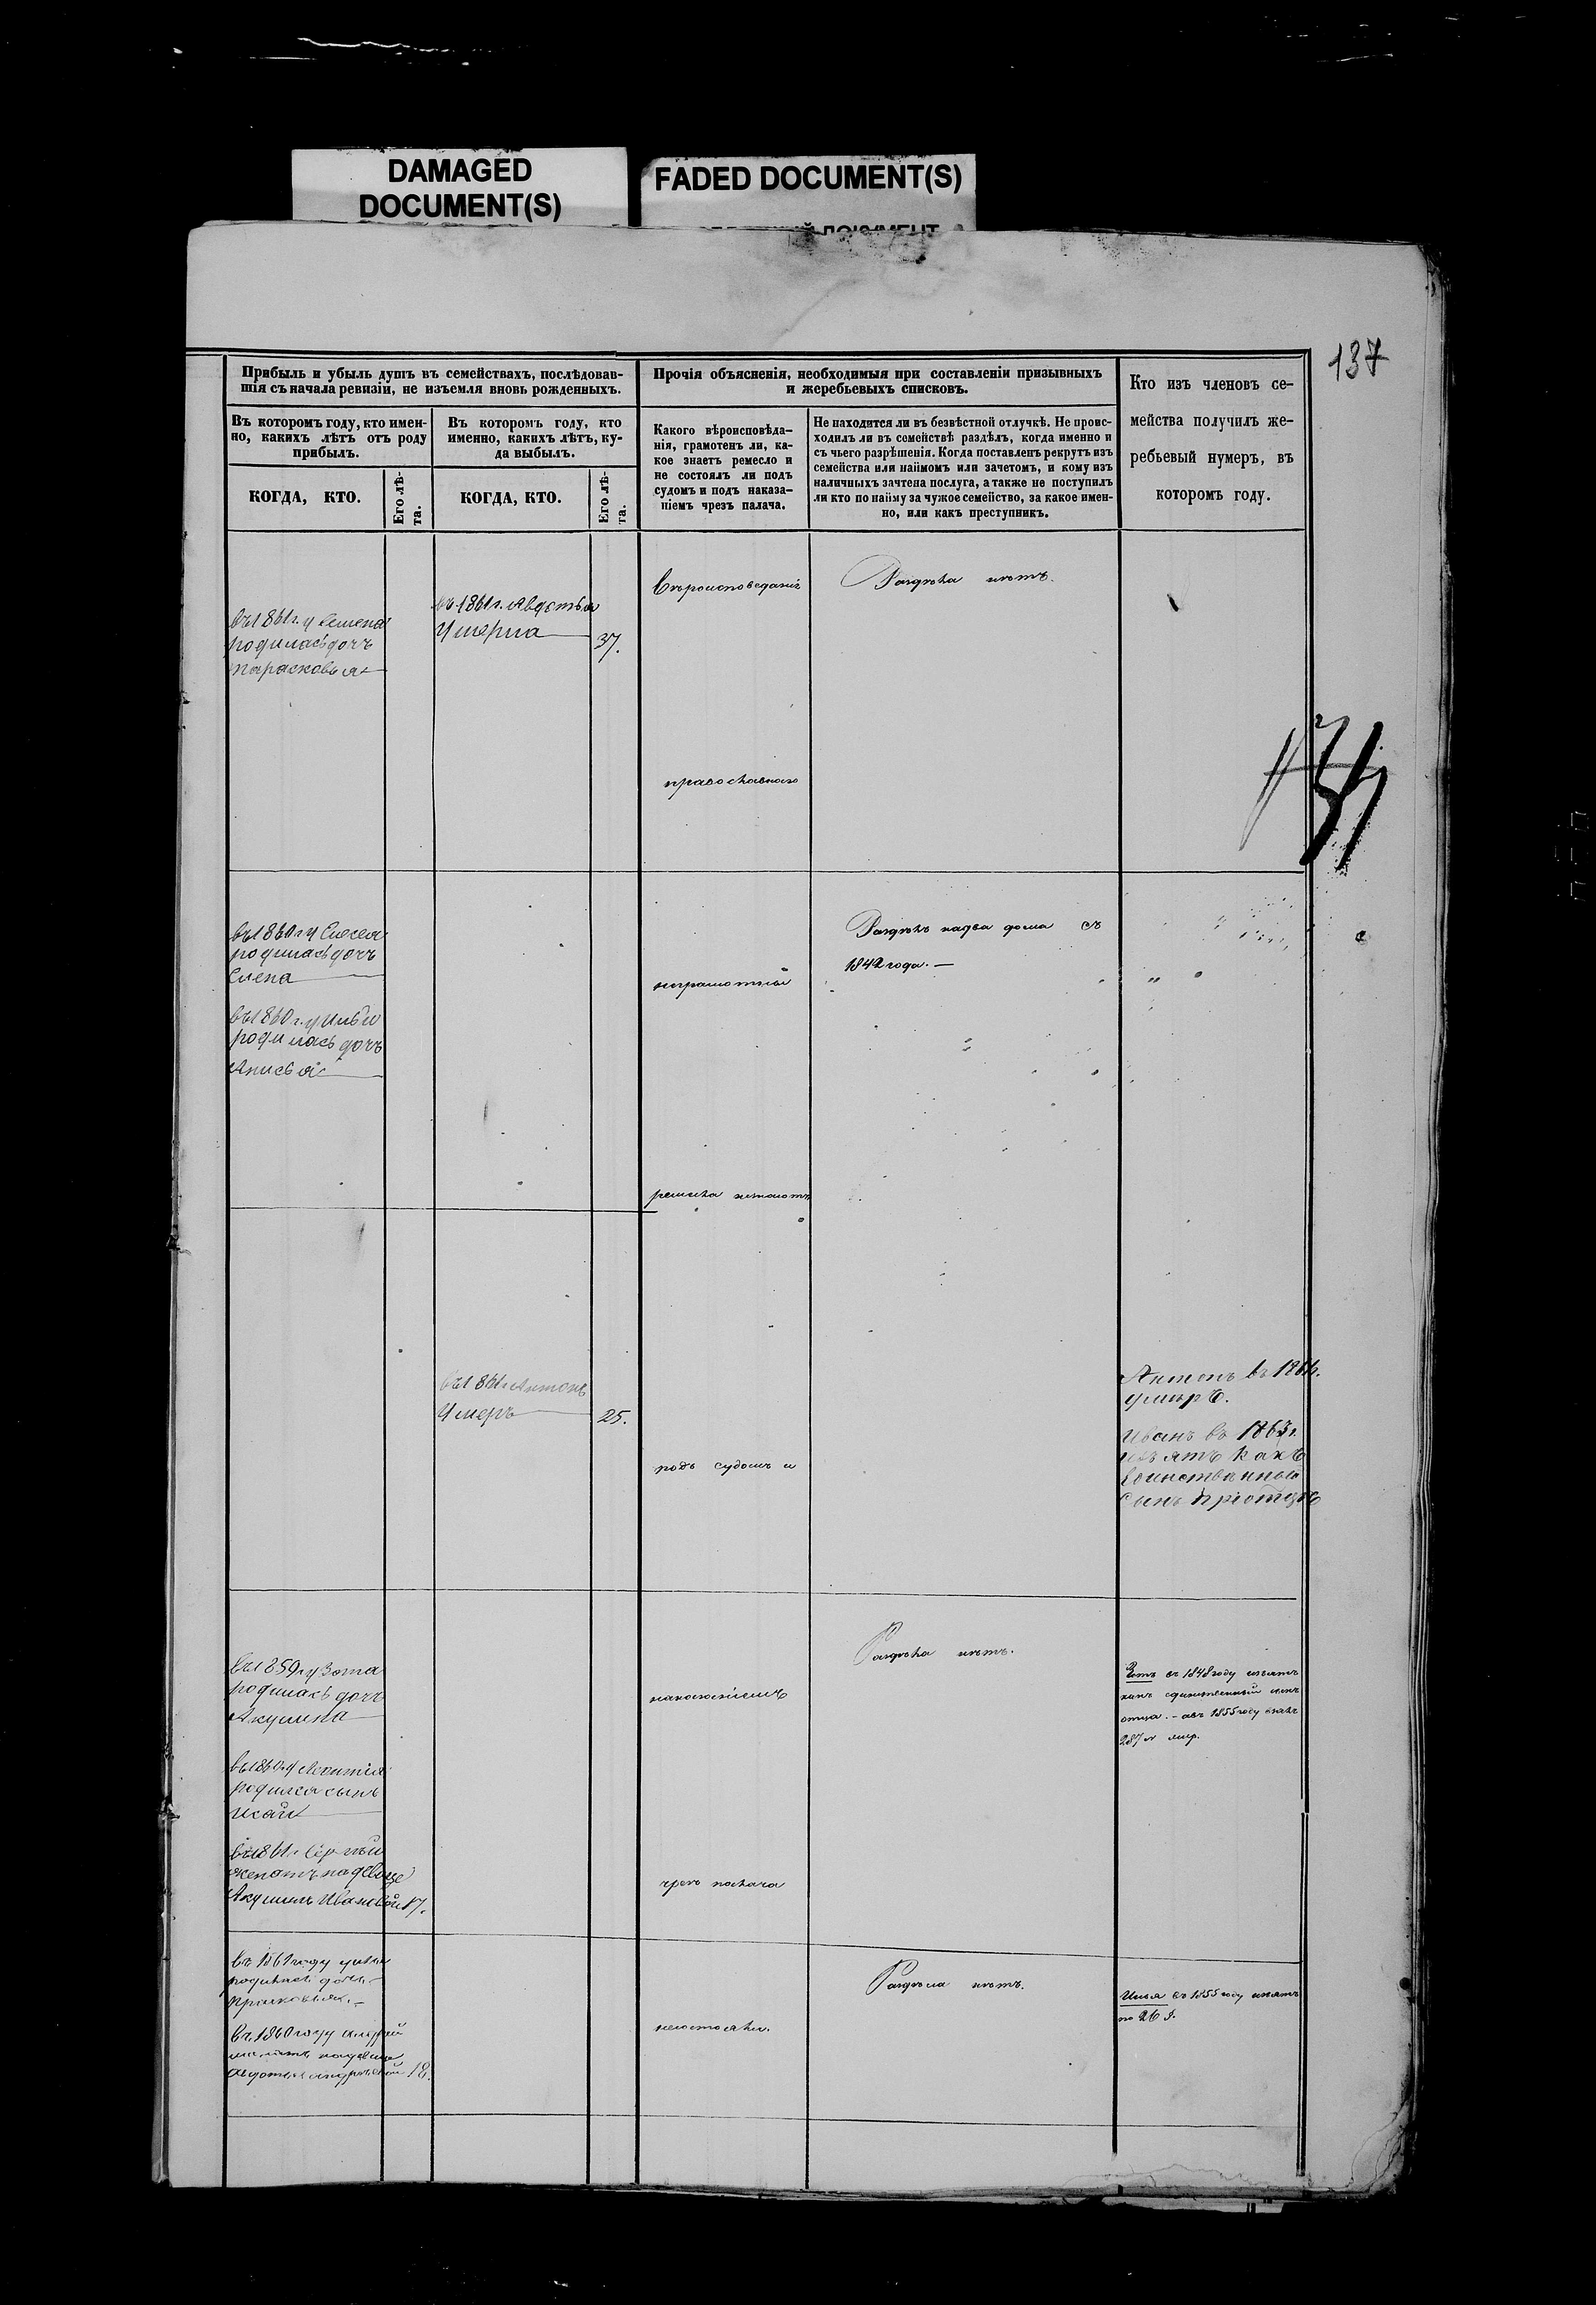 DAMAGED
DOCUMENT(S)
FADED DOCUMENT(S)
137
Прибыль и убыль душъ въ семействахъ, послѣдовав-
шія съ начала ревизіи, не изъемля вновь рожденныхъ.
Прочія объясненія, необходимыя при составленіи призывныхъ
и жеребьевыхъ списковъ.
Кто изъ членовъ се-
мейства получилъ же-
ребьевый нумеръ, въ
которомъ году.
Въ которомъ году, кто имен-
но, какихъ лѣтъ отъ роду
прибылъ.
Въ которомъ году, кто
именно, какихъ лѣтъ, ку-
да выбылъ.
Какого вѣроисповѣда-
нія, грамотенъ ли, ка-
кое знаетъ ремесло и
не состоялъ ли подъ
судомъ и подъ наказа-
ніемъ чрезъ палача.
Не находится ли въ безвѣстной отлучкѣ. Не проис-
ходилъ ли въ семействѣ раздѣлъ, когда именно и
съ чьего разрѣшенія. Когда поставленъ рекрутъ изъ
семейства или наймомъ или зачетомъ, и кому изъ
наличныхъ зачтена послуга, а также не поступилъ
ли кто по найму за чужое семейство, за какое имен-
но, или какъ преступникъ.
КОГДА, КТО.
Его лѣ-
та.
КОГДА, КТО.
Его лѣ-
та.
въ 1861 г. у Семена
родилась дочь
Парасковья
въ 1861 г. Авдотья
Умерла
37.
Вѣроисповеданія
Раздѣла нѣтъ.
православнаго
въ 1860 г. у
родилась дочь
Елена
въ 1860 г. у Ильи
родилась дочь
Анисья
неграмотный
Раздѣлъ на два дома съ
1842 года. —
ремесла
въ 1861 г. Антонъ
Умеръ
25.
подъ судомъ и
Антонъ въ 1861 г.
умиръ.
Иванъ въ 1863 г.
изъятъ какъ
Единственный
сынъ при отцѣ
въ 1859 г. у Зота
родилась дочь
Акулина
въ 1860 г. у
родился сынъ
Исай
въ 1861 г. Сергѣй
женатъ на девице
Акулине Ивановой 17.
наказаніемъ
Раздѣла нѣтъ.
Зотъ въ 1848 году изъятъ
какъ единственный сынъ
отца. — а въ 1855 году
287 №
чрезъ палача
въ 1861 году у Ильи
родилась дочь —
Прасковья. —
въ 1860 году Андрей
женатъ на девице
Авдотье Андреевой 18.
несостояли.
Раздѣла нѣтъ.
Илья въ 1855 году изъятъ
по 26